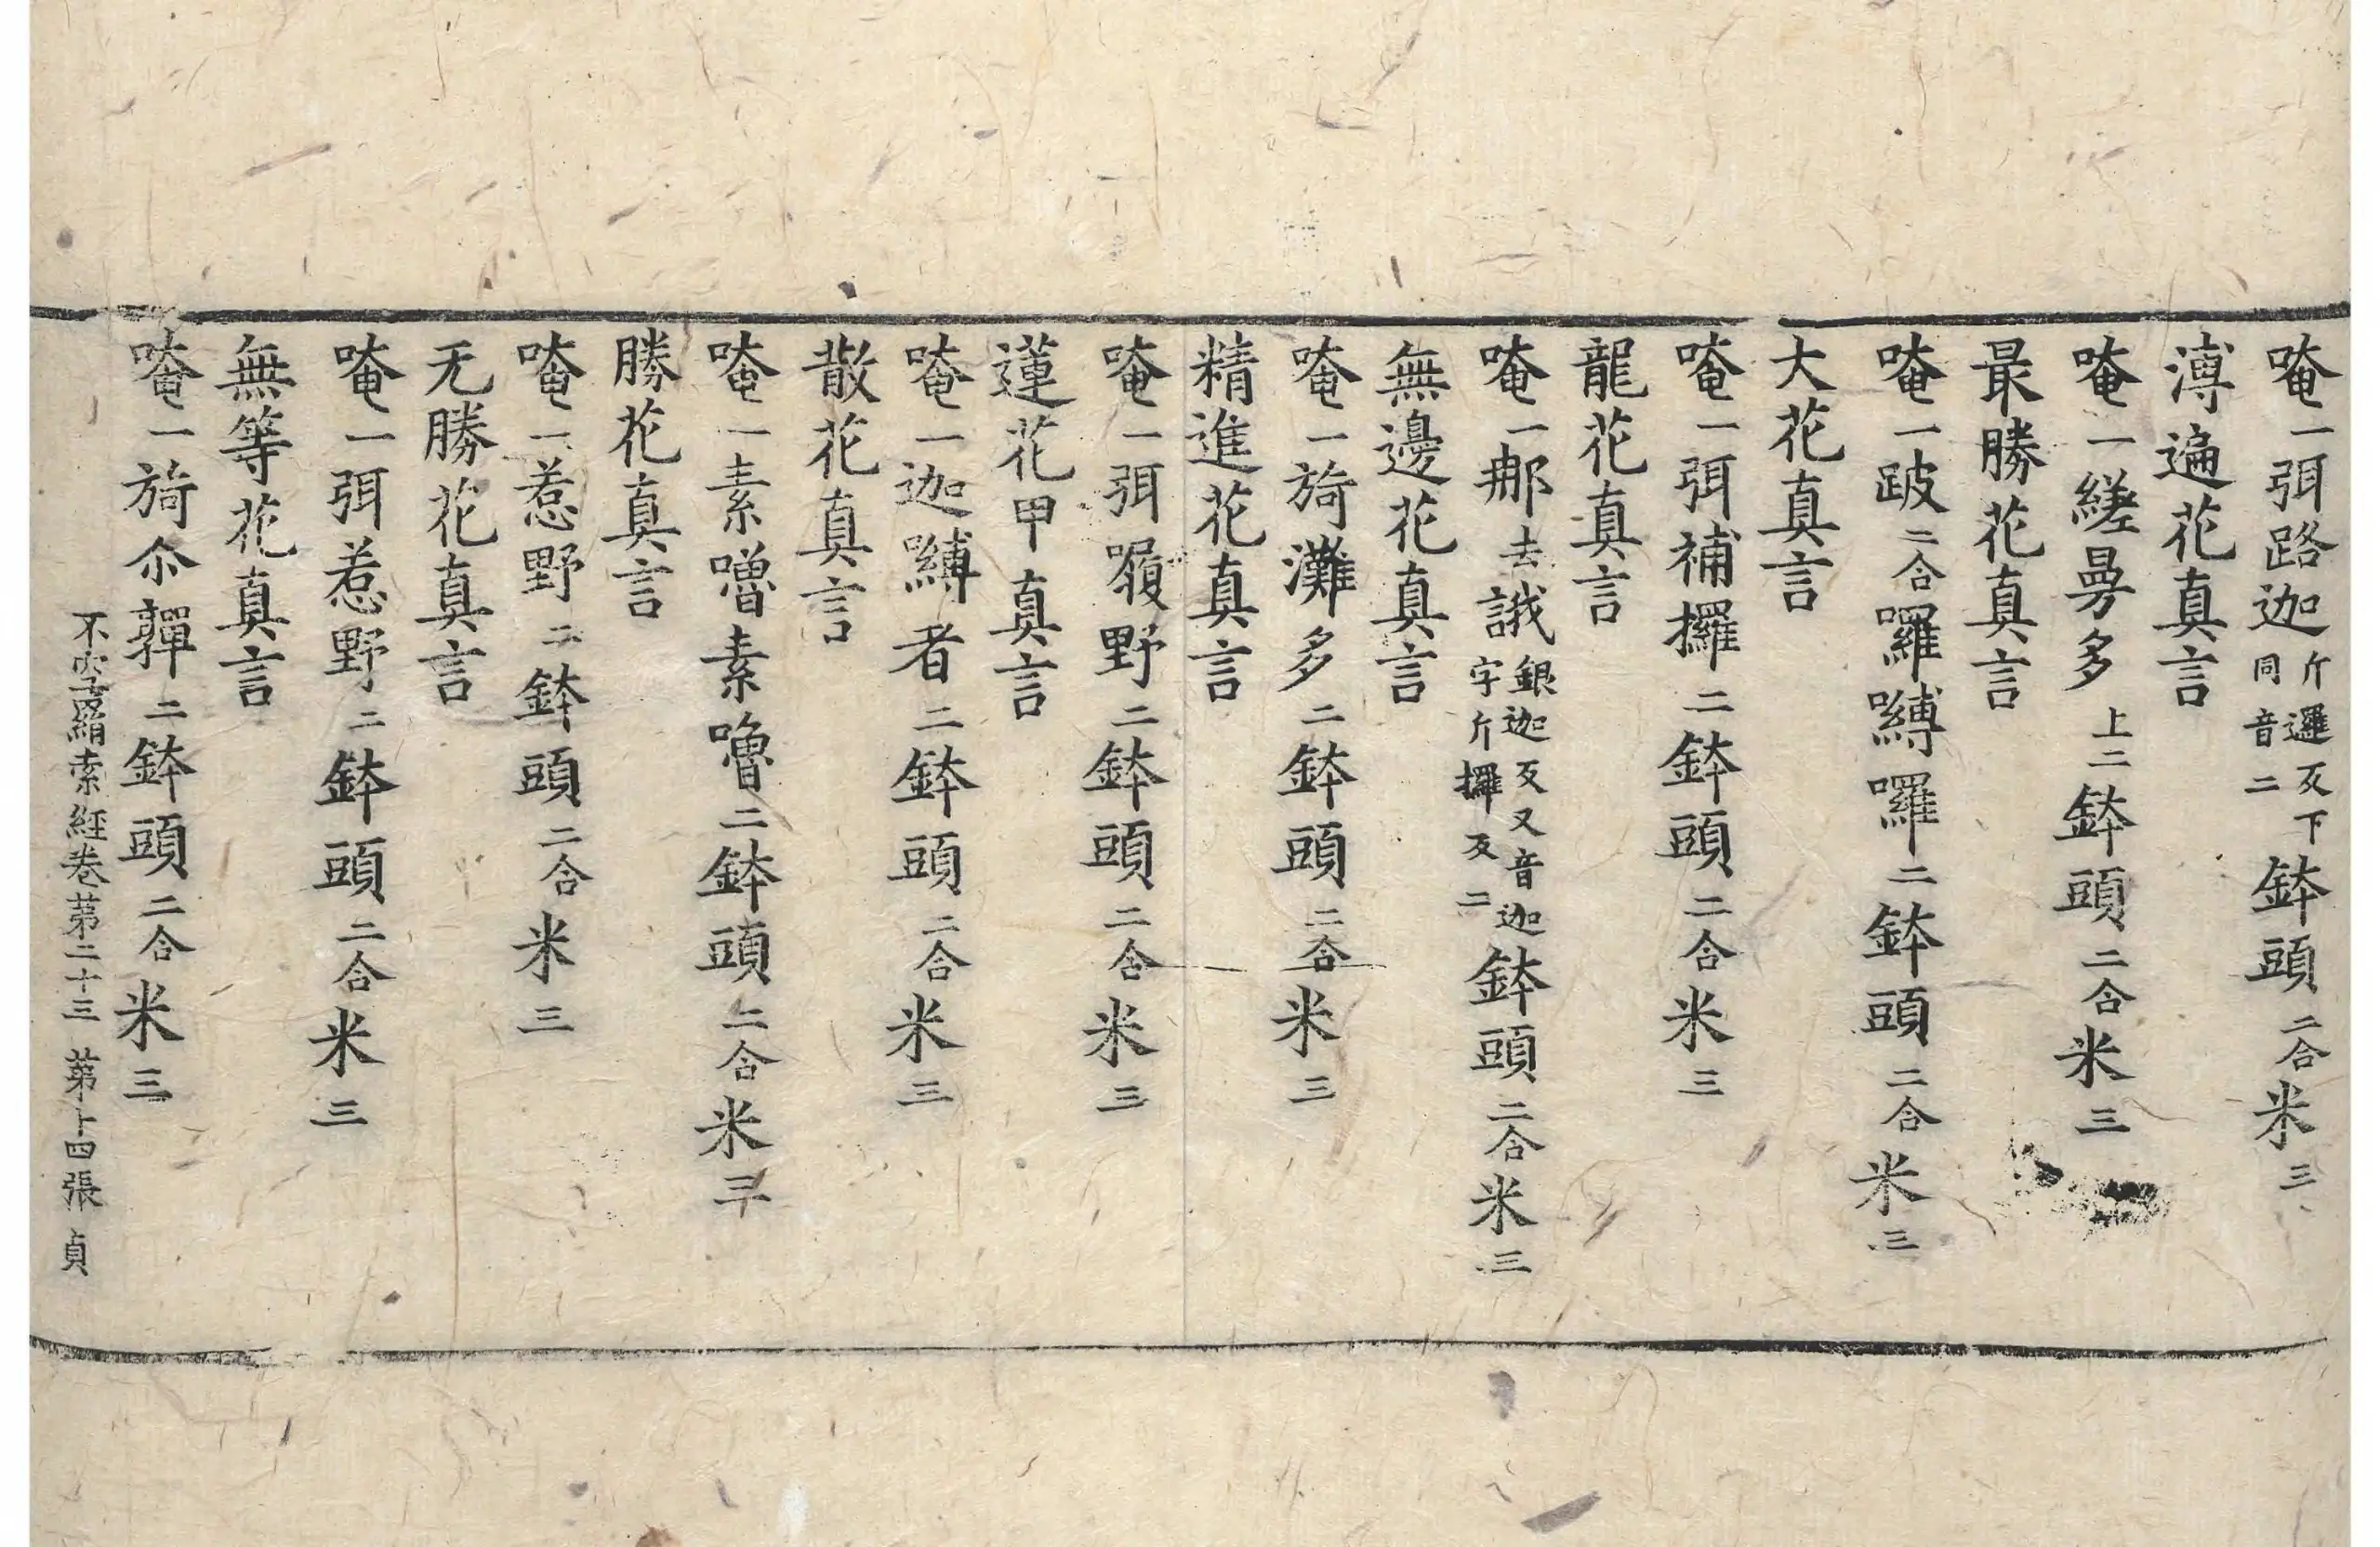 唵一弭路迦斤邏反下同音二鉢頭二合米三
溥遍花真言
唵一縒曼多上二鉢頭二合米三
最勝花真言
唵一跛二合囉嚩囉二鉢頭二合米三
大花真言
唵一弭補攞二鉢頭二合米三
龍花真言
唵一那去誐銀迦反又音迦字斤攞反二鉢頭二合米三
無邊花真言
唵一旖灘多二鉢頭二合米三
精進花真言
唵一弭𭌆野二鉢頭二合米三
蓮花甲真言
唵一迦嚩者二鉢頭二合米三
散花真言
唵一素嚕素嚕二鉢頭二合米三
勝花真言
唵一惹野二鉢頭二合米三
无勝花真言
唵一弭惹野二鉢頭二合米三
無等花真言
唵一旖尒亸二鉢頭二合米三
不空羂索経卷苐二十三 苐十四張 貞